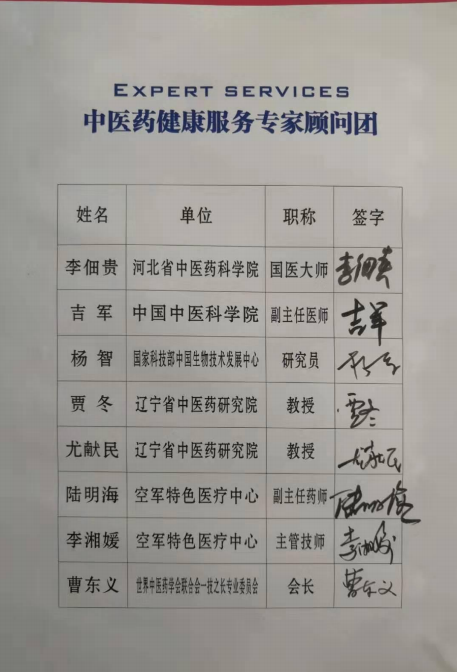 EXPERT SERVICES
中医药健康服务专家顾问团
姓名 单位 职称 签字
李佃贵 河北省中医药科学院 国医大师 李佃贵
吉军 中国中医科学院 副主任医师 吉军
杨智 国家科技部中国生物技术发展中心 研究员
贾冬 辽宁省中医药研究院 教授 贾冬
尤献民 辽宁省中医药研究院 教授 尤献民
陆明海 空军特色医疗中心 副主任药师 陆明海
李湘媛 空军特色医疗中心 主管技师 李湘媛
曹东义 世界中医药学会联合会一技之长专业委员会 会长 曹东义